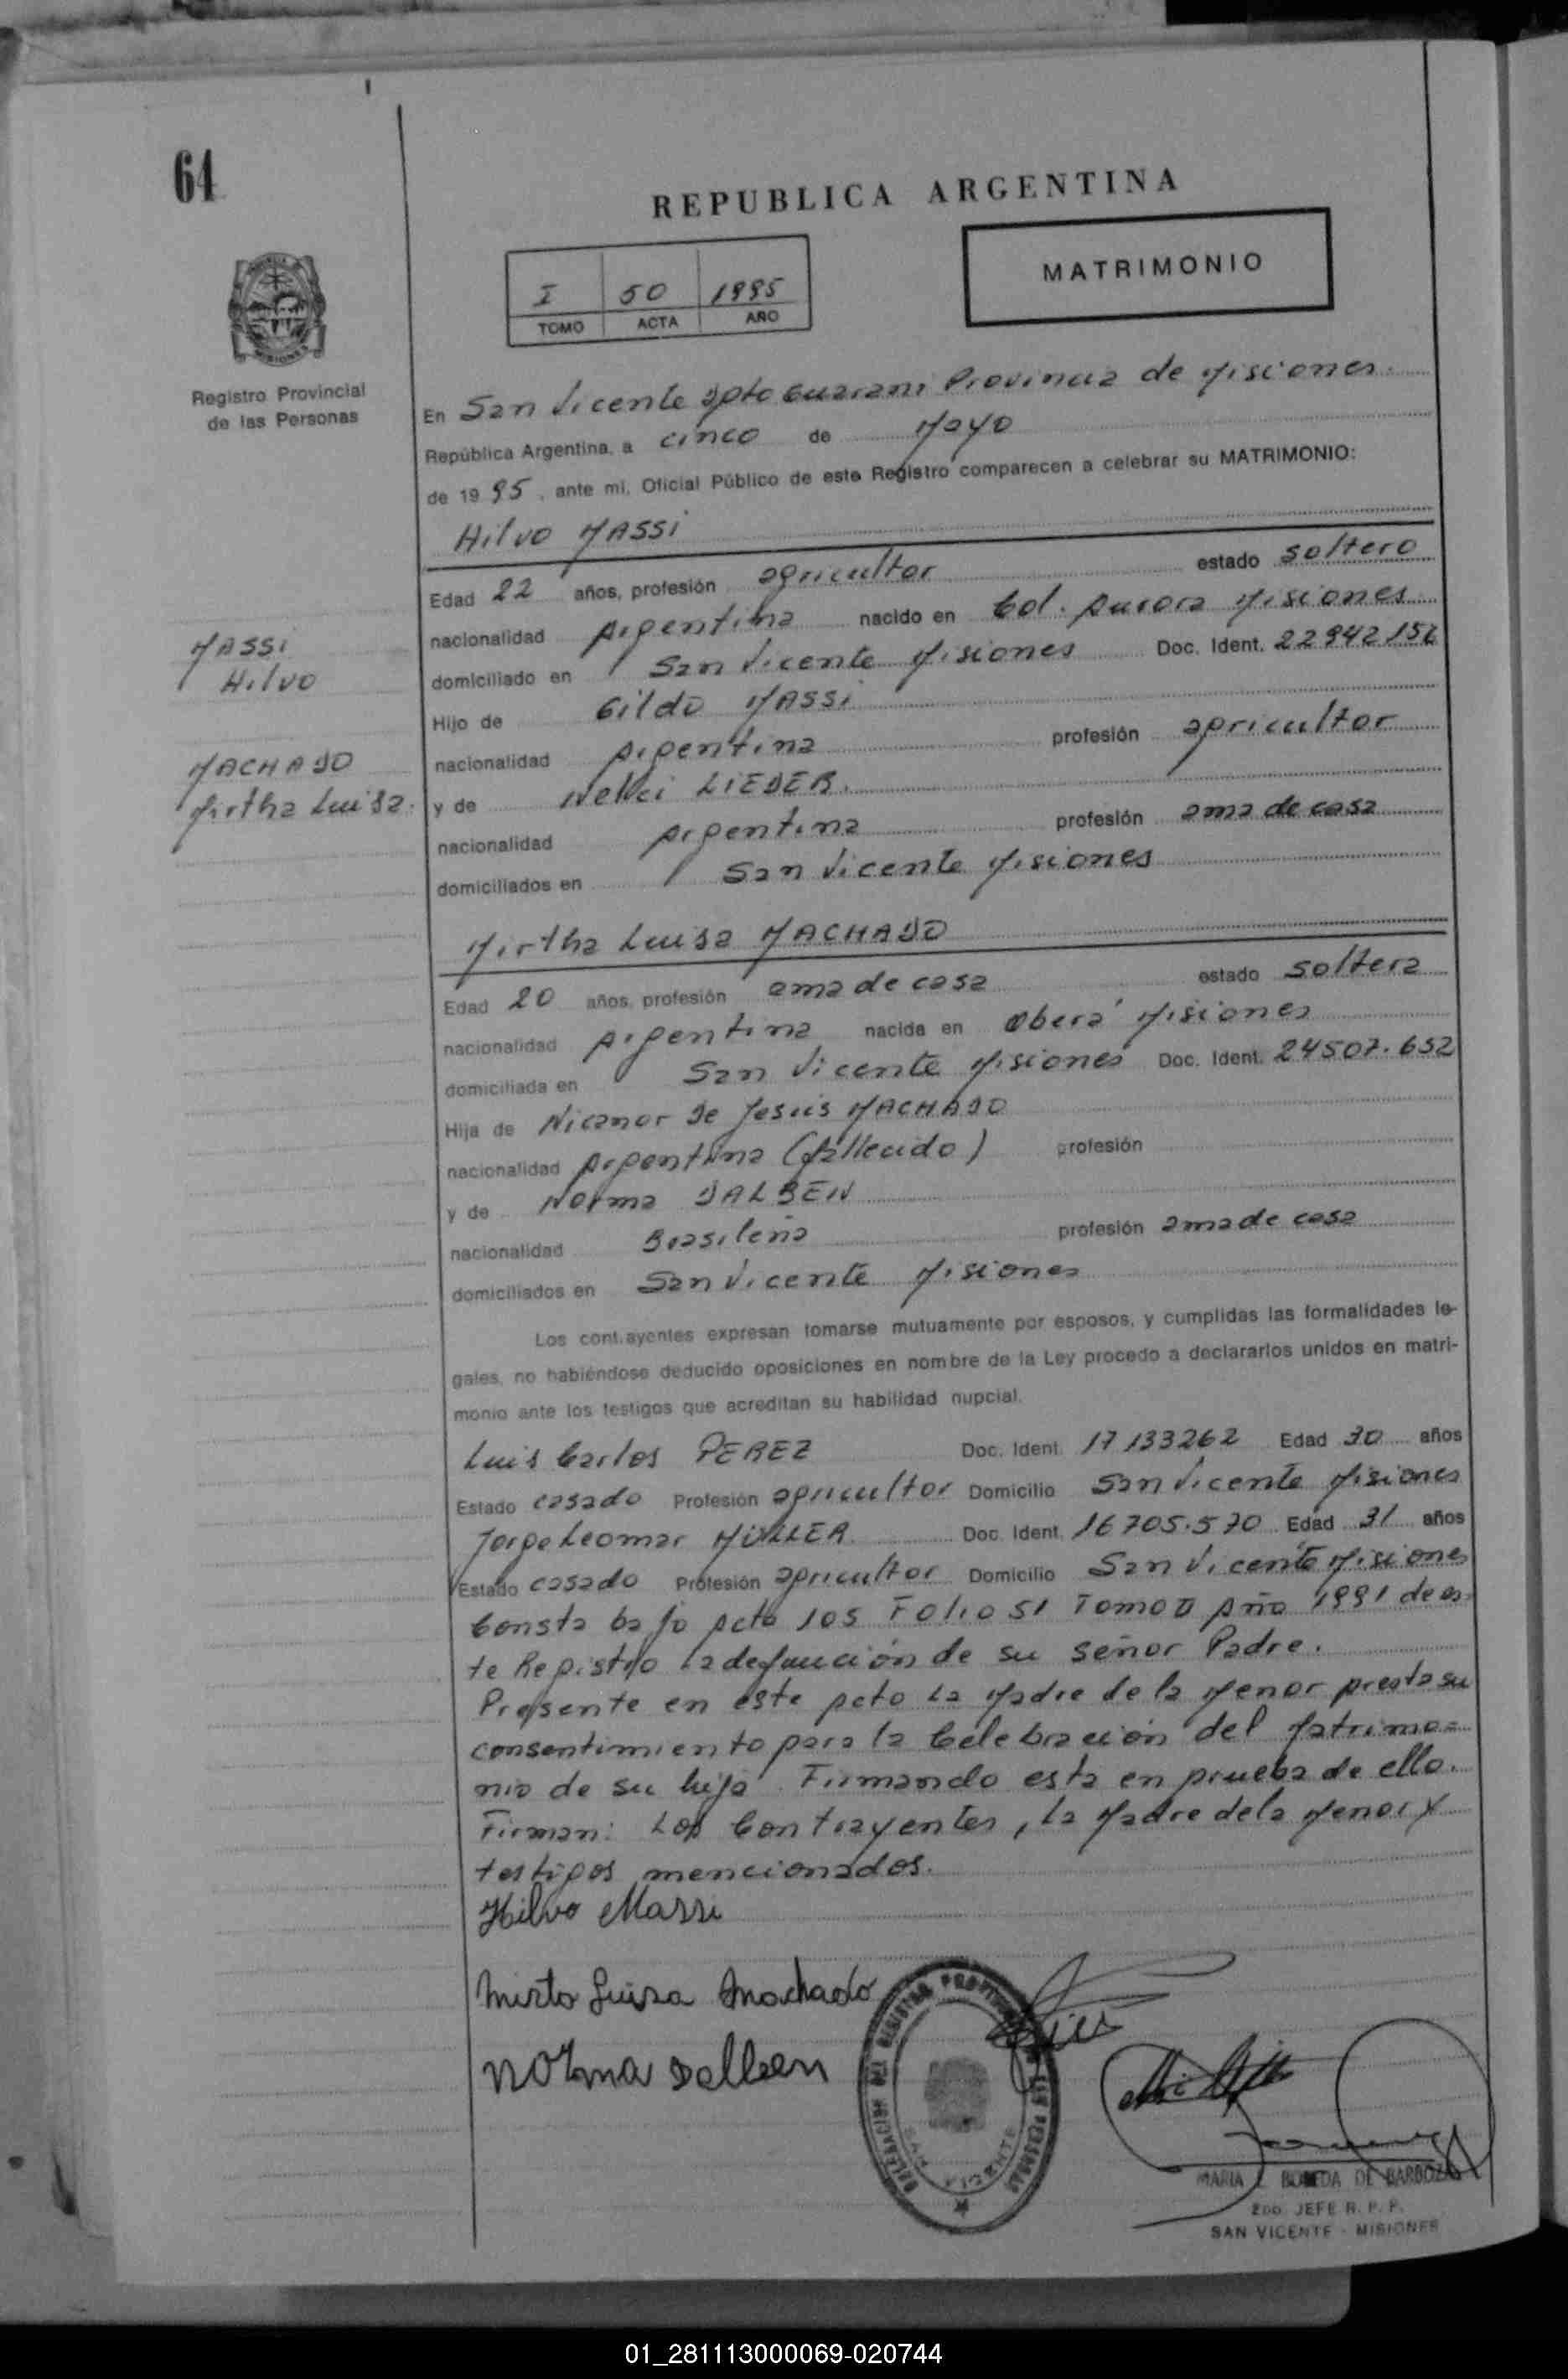 64
REPUBLICA ARGENTINA
I 50 1995
TOMO ACTA AÑO
MATRIMONIO
Registro Provincial
de las Personas
En San Vicente Dpto Guarani Provincia de Misiones.
República Argentina, a cinco de Mayo
de 1995, ante mi, Oficial Público de este Registro comparecen a celebrar su MATRIMONIO:
Hilvo MASSi
Edad 22 años, profesión agricultor estado soltero
nacionalidad Argentina nacido en Col. Aurora Misiones
domiciliado en San Vicente Misiones Doc. Ident. 22942156
MASSi
Hilvo
Hijo de Gildo MASSi
nacionalidad Argentina profesión agricultor
MACHADO
Mirtha Luisa.
y de Nelci LiEDER.
nacionalidad Argentina profesión ama de casa
domiciliados en San Vicente Misiones
Mirtha Luisa MACHADO
Edad 20 años, profesión ama de casa estado soltera
nacionalidad Argentina nacida en Oberá Misiones
domiciliada en San Vicente Misiones Doc. Ident. 24507.652
Hija de Nicanor De Jesús MACHADO
nacionalidad Argentina (fallecido) profesión
y de Norma DALBEN
nacionalidad Brasileña profesión ama de casa
domiciliados en San Vicente Misiones
Los contrayentes expresan tomarse mutuamente por esposos, y cumplidas las formalidades le-
gales, no habiéndose deducido oposiciones en nombre de la Ley procedo a declararlos unidos en matri-
monio ante los testigos que acreditan su habilidad nupcial.
Luis Carlos PEREZ Doc. Ident. 17133262 Edad 30 años
Estado casado Profesión agricultor Domicilio San Vicente Misiones
Jorge Leomar MÜLLER Doc. Ident. 16705.570 Edad 31 años
Estado casado Profesión agricultor Domicilio San Vicente Misiones
Consta bajo Acta 105 Folio 51 Tomo II Año 1991 de es-
te Registro la defunción de su señor Padre.
Presente en este Acto la Madre de la Menor presta su
consentimiento para la Celebración del Matrimo=
nio de su hija. Firmando esta en prueba de ello.
Firman: Los Contrayentes, la Madre de la Menor y
testigos mencionados.
Hilvo Massi
Mirta Luisa Machado
Norma Dalben
DELEGACION DEL REGISTRO PROVINCIAL DE LAS PERSONAS
SAN VICENTE
MARIA BOVEDA DE BARBOZA
2DO. JEFE R. P. P.
SAN VICENTE - MISIONES
01_281113000069-020744